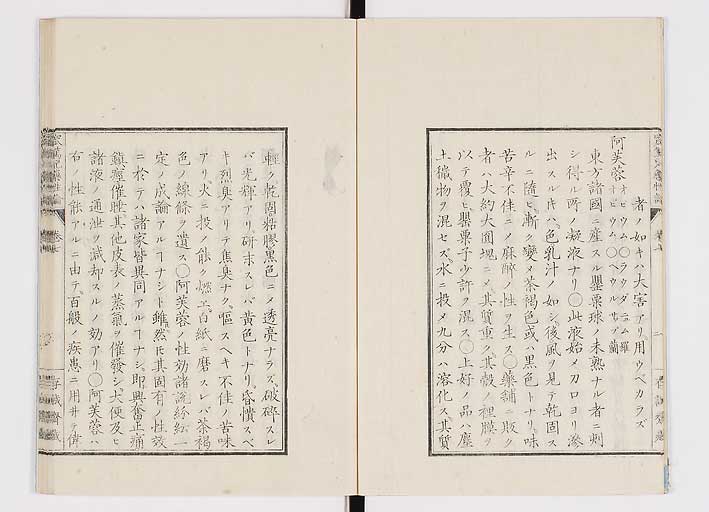 者ノ如キハ大害アリ用ウベカラズ
阿芙蓉 オピウム〇ラウダニュム羅 オピウム〇ヘウルサプ蘭
東方諸國ニ産スル罌粟球ノ未熟ナル者ニ刺
シ得ル所ノ凝液ナリ〇此液始メ刀口ヨリ滲
出スル片ハ色乳汁ノ如シ後風ヲ見テ乾固ス
ルニ隨ヒ漸ク變メ茶褐色或ハ黒色トナリ味
苦辛不佳ニメ麻酔ノ性ヲ生ス〇藥舗ニ販ク
者ハ大約大圓塊ニメ其質重ク其殻ノ裡膜ヲ
以テ覆ヒ罌粟子少許ヲ混ス〇上好ノ品ハ塵
土穢物ヲ混セズ水ニ投メ九分ハ溶化ス其質
輕ク乾固粘膠黒色ニメ透亮ナラズ破碎スレ
バ光輝アリ研末スレバ黄色トナリ昏憒スベ
キ烈臭アリテ焦臭ナク嘔スヘキ不佳ノ苦味
アリ火ニ投ノ能ク燃エ白紙ニ磨スレバ茶褐
色ノ線條ヲ遺ス〇阿芙蓉ノ性効諸説紛紜一
定ノ成論アルヿナシト雖然𪜈其固有ノ性效
ニ於テハ諸家皆異同アルヿナシ即興奮止痛
鎮痙催睡其他皮表ノ蒸氣ヲ催發シ大便及ヒ
諸液ノ通泄ヲ減却スルノ効アリ〇阿芙蓉ハ
右ノ性能アルニ由テ百般ノ疾患ニ用井テ偉